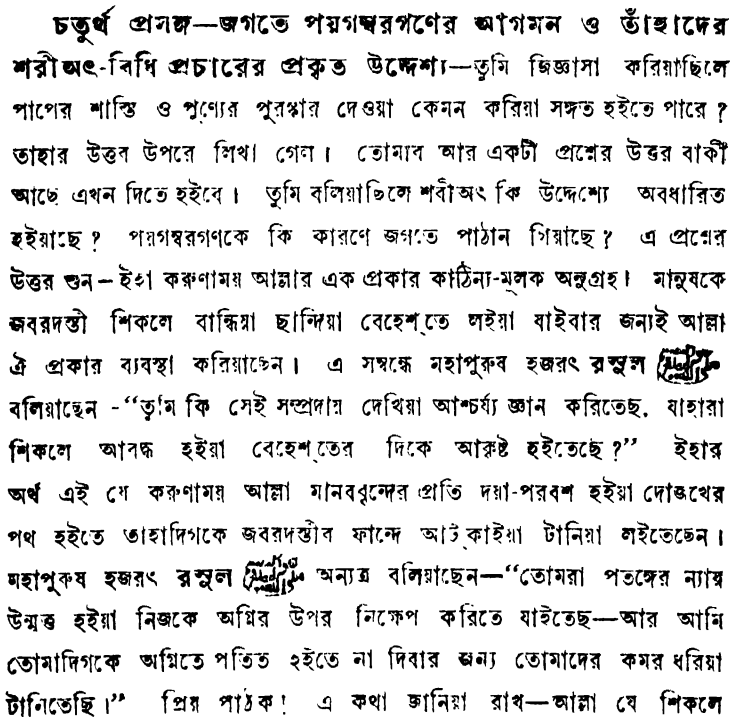 চতুর্থ প্রসঙ্গ—জগতে পয়গম্বরগণের আগমন ও তাঁহাদের
শরীঅৎ-বিধি প্রচারের প্রকৃত উদ্দেশ্য—তুমি জিজ্ঞাসা করিয়াছিলে
পাপের শাস্তি ও পুণ্যের পুরস্কার দেওয়া কেমন করিয়া সঙ্গত হইতে পারে ?
তাহার উত্তর উপরে লিখা গেল। তোমার আর একটী প্রশ্নের উত্তর বাকী
আছে এখন দিতে হইবে। তুমি বলিয়াছিলে শরীঅৎ কি উদ্দেশ্যে অবধারিত
হইয়াছে? পয়গম্বরগণকে কি কারণে জগতে পাঠান গিয়াছে? এ প্রশ্নের
উত্তর শুন—ইহা করুণাময় আল্লার এক প্রকার কাঠিন্য-মূলক অনুগ্রহ। মানুষকে
জবরদস্তী শিকলে বান্ধিয়া ছান্দিয়া বেহেশ্‌তে লইয়া যাইবার জন্যই আল্লা
ঐ প্রকার ব্যবস্থা করিয়াছেন। এ সম্বন্ধে মহাপুরুষ হজরৎ রসুল
বলিয়াছেন -“তুমি কি সেই সম্প্রদায় দেখিয়া আশ্চর্য্য জ্ঞান করিতেছ, যাহারা
শিকলে আবদ্ধ হইয়া বেহেশ্‌তের দিকে আকৃষ্ট হইতেছে?” ইহার
অর্থ এই যে করুণাময় আল্লা মানববৃন্দের প্রতি দয়া-পরবশ হইয়া দোজখের
পথ হইতে তাহাদিগকে জবরদস্তীর ফান্দে আট্‌কাইয়া টানিয়া লইতেছেন।
মহাপুরুষ হজরৎ রসুল অন্যত্র বলিয়াছেন—“তোমরা পতঙ্গের ন্যায়
উন্মত্ত হইয়া নিজকে অগ্নির উপর নিক্ষেপ করিতে যাইতেছ—আর আমি
তোমাদিগকে অগ্নিতে পতিত হইতে না দিবার জন্য তোমাদের কমর ধরিয়া
টানিতেছি।” প্রিয় পাঠক! এ কথা জানিয়া রাখ—আল্লা যে শিকলে